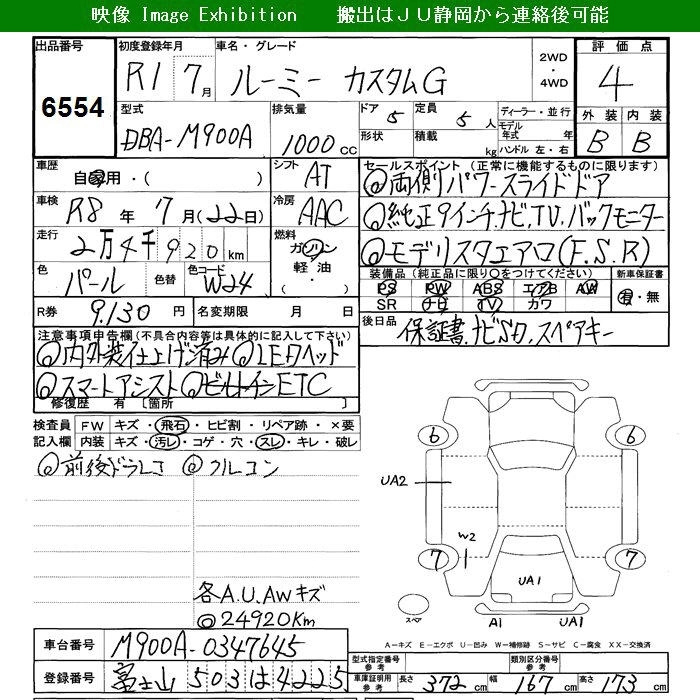 映像 Image Exhibition 搬出はＪＵ静岡から連絡後可能
出品番号 6554
初度登録年月 R1 7月
車名・グレード ルーミー カスタムG
2WD・4WD
評価点 4
型式 DBA-M900A
排気量 1000cc
ドア 5 定員 5人
形状 積載 kg
ディーラー・並行
モデル年式 年
ハンドル 左・右
外装 B 内装 B
車歴 自家用・( )
シフト AT
車検 R8年 7月(22日)
冷房 AAC
走行 2万4千920km
燃料 ガソリン 軽油・
色 パール 色替 色コード W24
R券 9,130円 名変期限 月 日
セールスポイント (正常に機能するものに限ります)
◎両側パワースライドドア
◎純正9インチナビ,TV,バックモニター
◎モデリスタエアロ(F.S.R)
装備品(純正品に限り○をつけてください) 新車保証書
PS PW ABS エアB AW 有・無
SR ナビ TV カワ
後日品 保証書,ナビSD,スペアキー
注意事項申告欄(不具合内容等は具体的に記入して下さい)
◎内外装仕上げ済み ◎LEDヘッド
◎スマートアシスト ◎ビルトインETC
修復歴 有 [箇所
検査員記入欄
FW キズ・飛石・ヒビ割・リペア跡・×要
内装 キズ・汚レ・コゲ・穴・スレ・キレ・破レ
◎前後ドラレコ ◎クルコン
各A.U.AWキズ
◎24920Km
6 6
UA2
W2
7 7
UA1
スペア
A1 UA1
A－キズ E－エクボ U－凹み W－補修跡 S－サビ C－腐食 XX－交換済
車台番号 M900A-0347645
登録番号 富士山 503 は 4225
型式指定番号 参考 類別区分番号 参考
車庫証明用 参考 長さ 372cm 幅 167cm 高さ 173cm